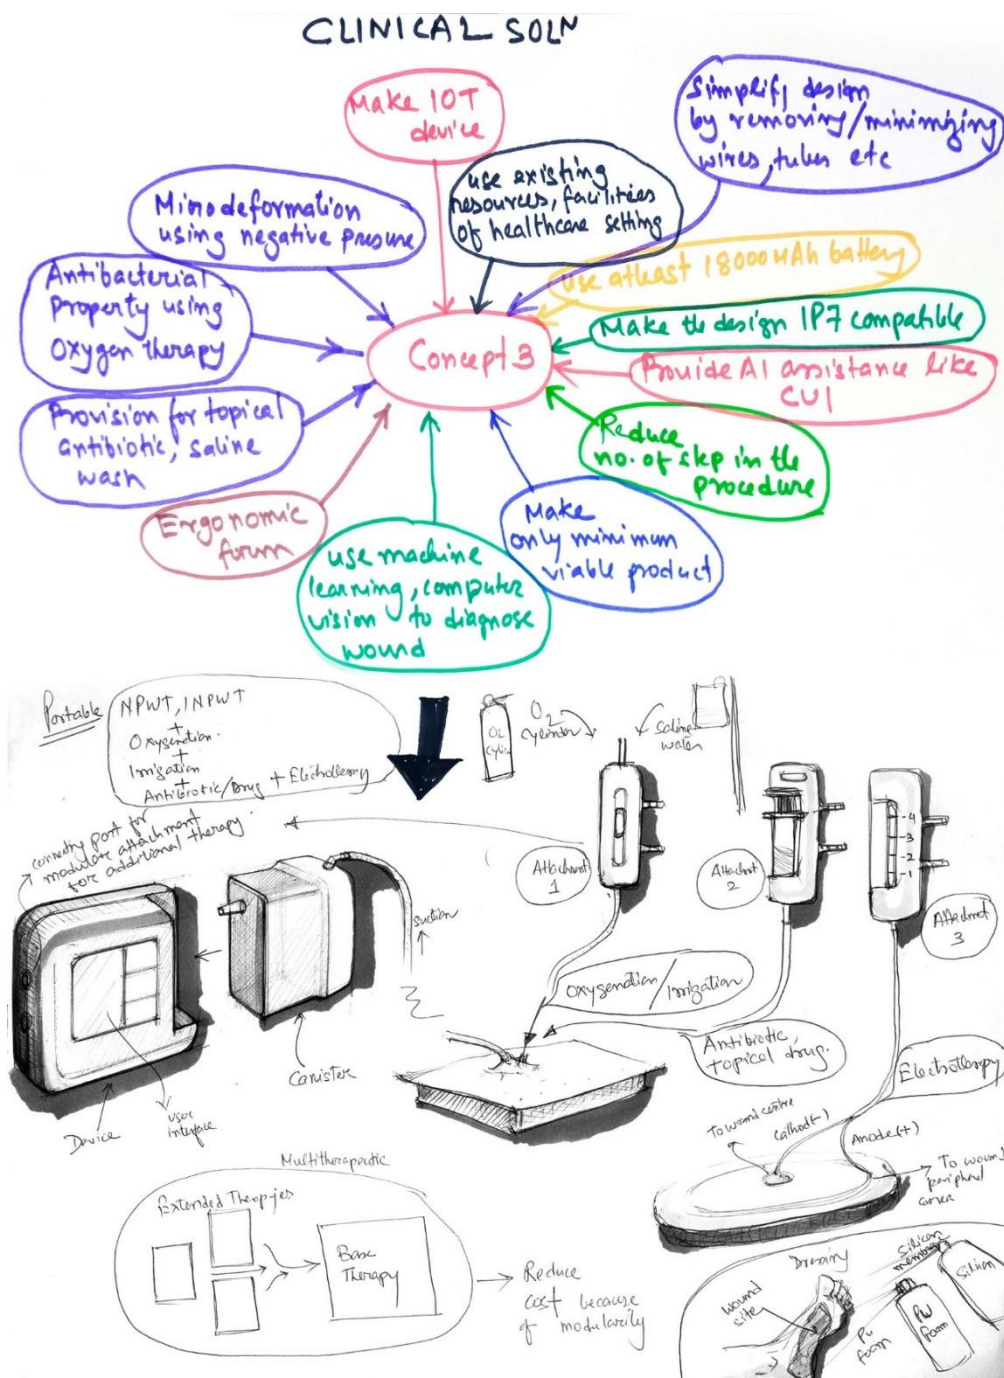 CLINICAL SOLN
Make IOT
device
Simplify design
by removing/minimizing
wires, tubes etc
use existing
resources, facilities
of healthcare setting
Microdeformation
using negative pressure
use atleast 18000MAh battery
Antibacterial
Property using
Oxygen therapy
Make the design IP7 compatible
Concept 3
Provide AI assistance like
CUI
Provision for topical
antibiotic, saline
wash
Reduce
no. of step in the
procedure
Ergonomic
form
Make
only minimum
viable product
use machine
learning, computer
vision to diagnose
wound
Portable
NPWT, INPWT
+
Oxygenation
+
Irrigation
+
Antibiotic/Drug + Electrotherapy
O2
Cylin
O2
Cylinder
Saline
water
connecting port for
modular attachment
for additional therapy.
Attachment
1
Attachmnt
2
4
3
2
1
Attachmet
3
suction
Oxygenation/Irrigation
Antibiotic,
topical drug.
Electrotherapy
Canister
Device
user
interface
To wound centre
Cathod(-)
Anode(+)
To wound
peripheral
Multitherapeutic
Extended Therapies
Base
Therapy
Reduce
cost because
of modularity
Dressing
wound
site
Silicon
membra
Silicon
PU
foam
PU
foam